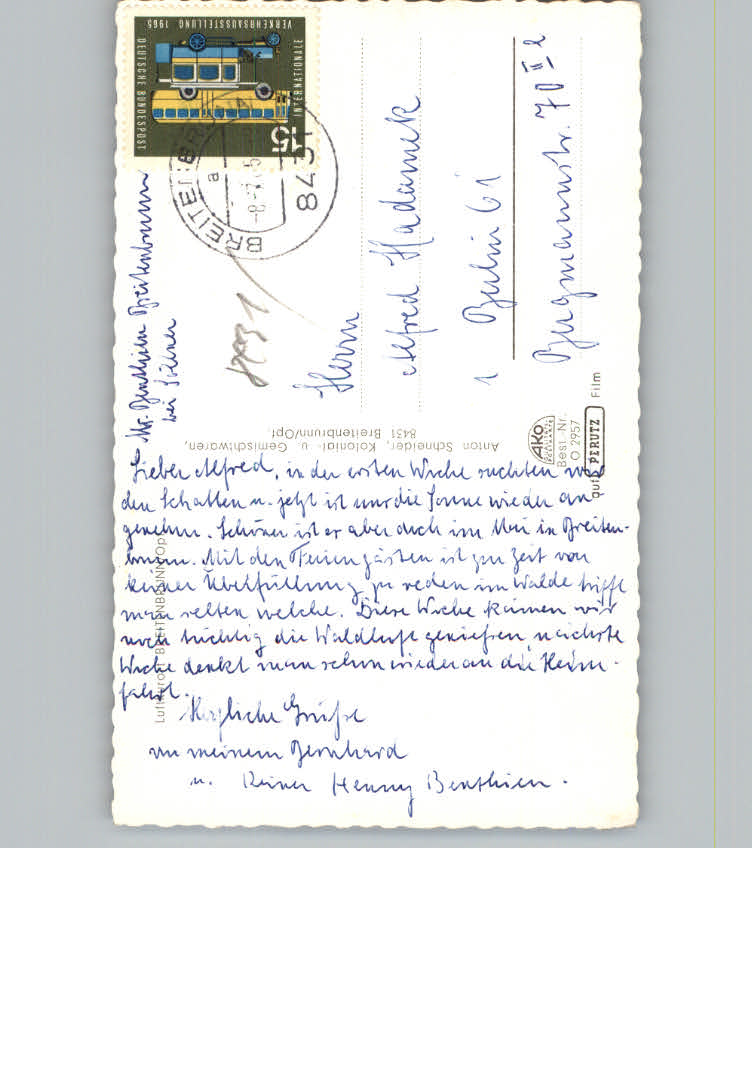 DEUTSCHE BUNDESPOST
INTERNATIONALE
VERKEHRSAUSSTELLUNG 1965
15
BREITENBRUNN
a
8431
Abs. Benthien Breitenbrunn
bei Söllner
8431
Herrn
Alfred Hadamek
1 Berlin 61
Bergmannstr. 70 II l
Anton Schneider, Kolonial- u. Gemischtwaren,
8431 Breitenbrunn/Opf.
AKO
Best.-Nr.
O 2957
auf PERUTZ Film
Luftkurort BREITENBRUNN/Opf.
Lieber Alfred, in der ersten Woche suchten wir
den Schatten u. jetzt ist uns die Sonne wieder an
genehm. Schöner ist es aber doch im Mai in Breiten-
brunn. Mit den Feriengästen ist zur Zeit von
keiner Überfüllung zu reden im Walde trifft
man selten welche. Diese Woche können wir
noch tüchtig die Waldluft genießen nächste
Woche denkt man schon wieder an die Heim-
fahrt.
Herzliche Grüße
von meinem Bernhard
u. Deiner Henny Benthien.